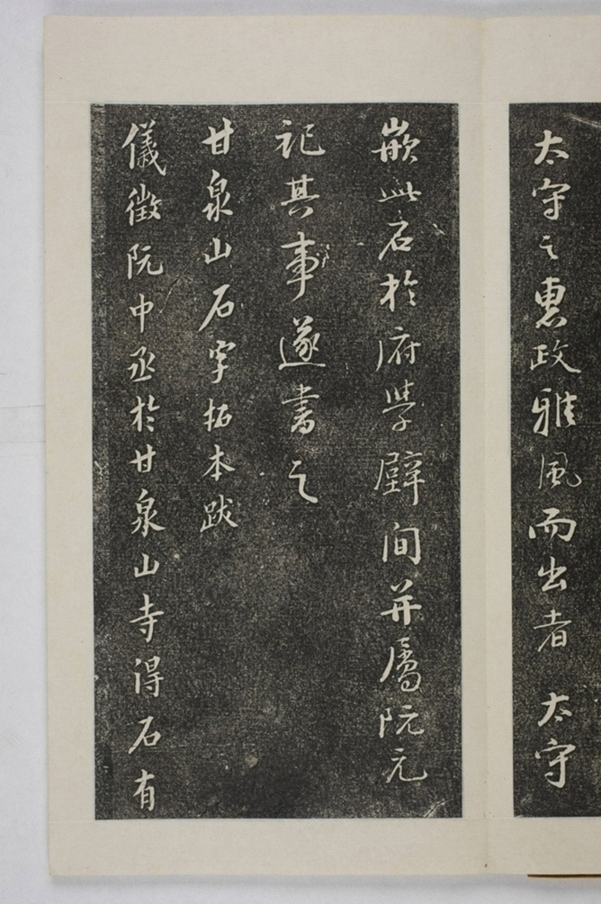 太守之惠政雅風而出者 太守
嵌此石於府學壁間并屬阮元
記其事遂書之
甘泉山石字拓本跋
儀徵阮中丞於甘泉山寺得石有